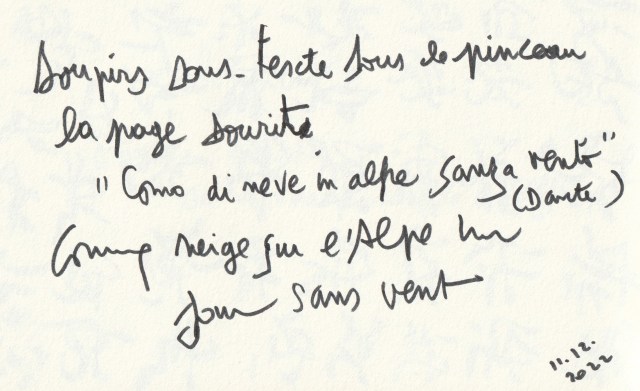 Soupirs sous-texte sous le pinceau
la page sourit
"Como di neve in alpe sanza vento"
(Dante)
Comme neige sur l'Alpe un
jour sans vent
11.12.
2022